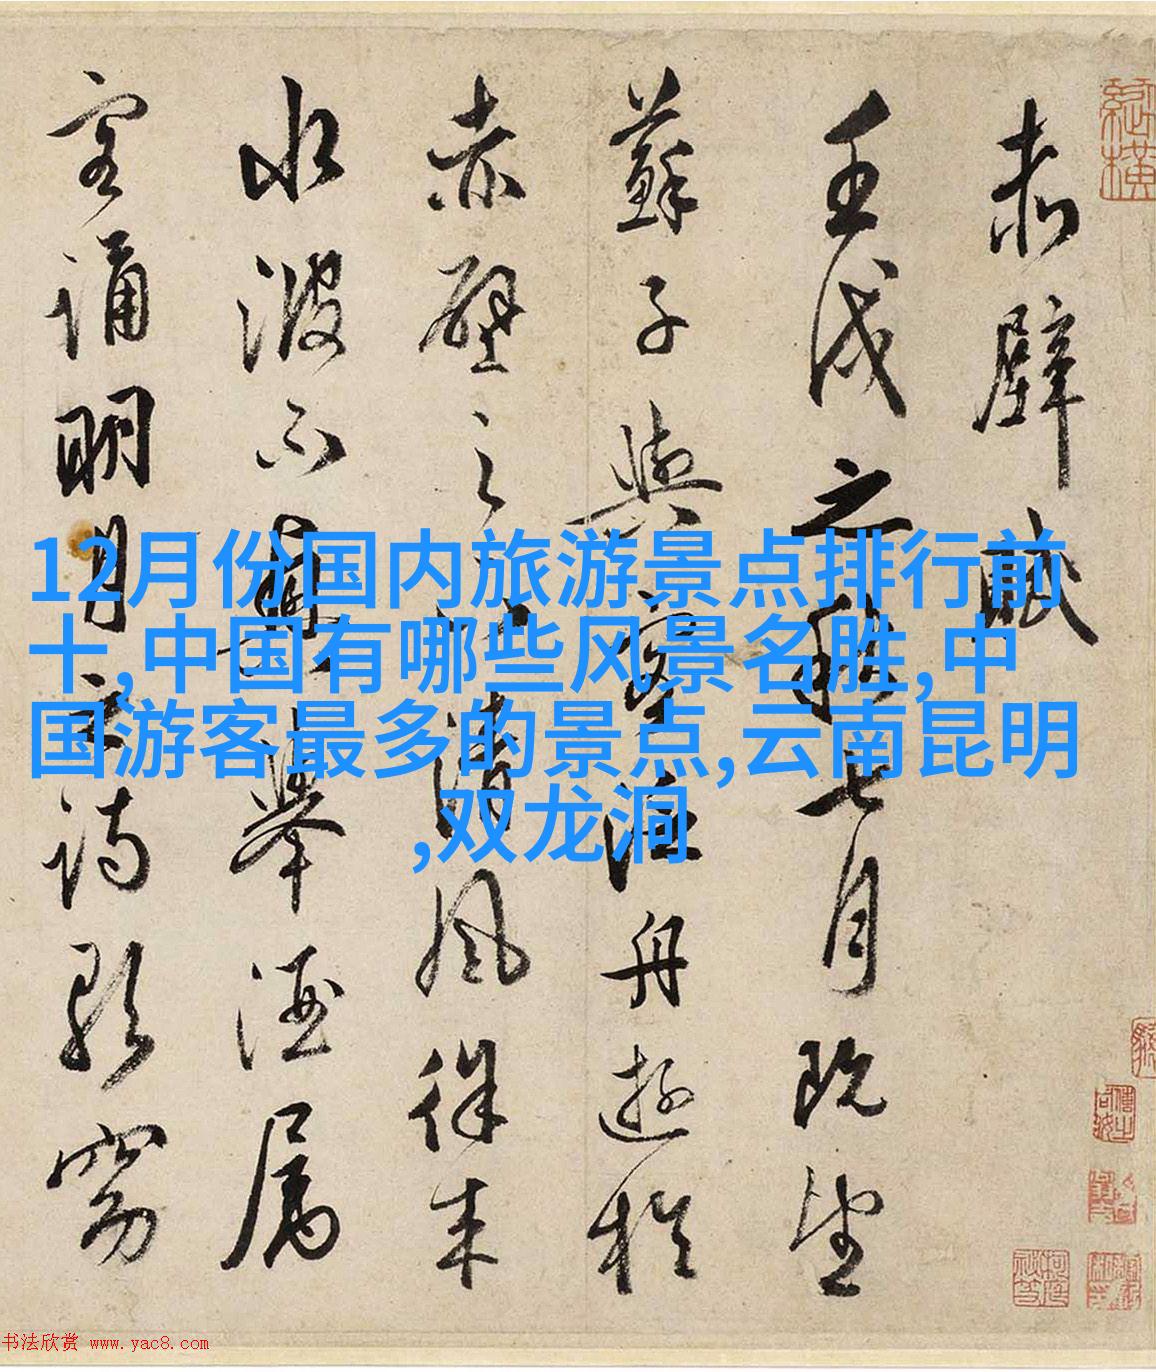 赤壁賦
壬戌之秋七月既望
蘇子與客泛舟遊於
赤壁之下清風徐來
水波不興舉酒屬
客誦明月之詩歌窈
12月份国内旅游景点排行前
十,中国有哪些风景名胜,中
国游客最多的景点,云南昆明
,双龙涧
书法欣赏 www.yac8.com